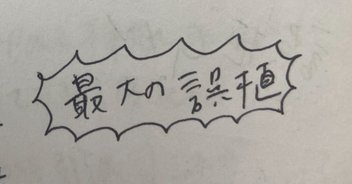 最大の誤植